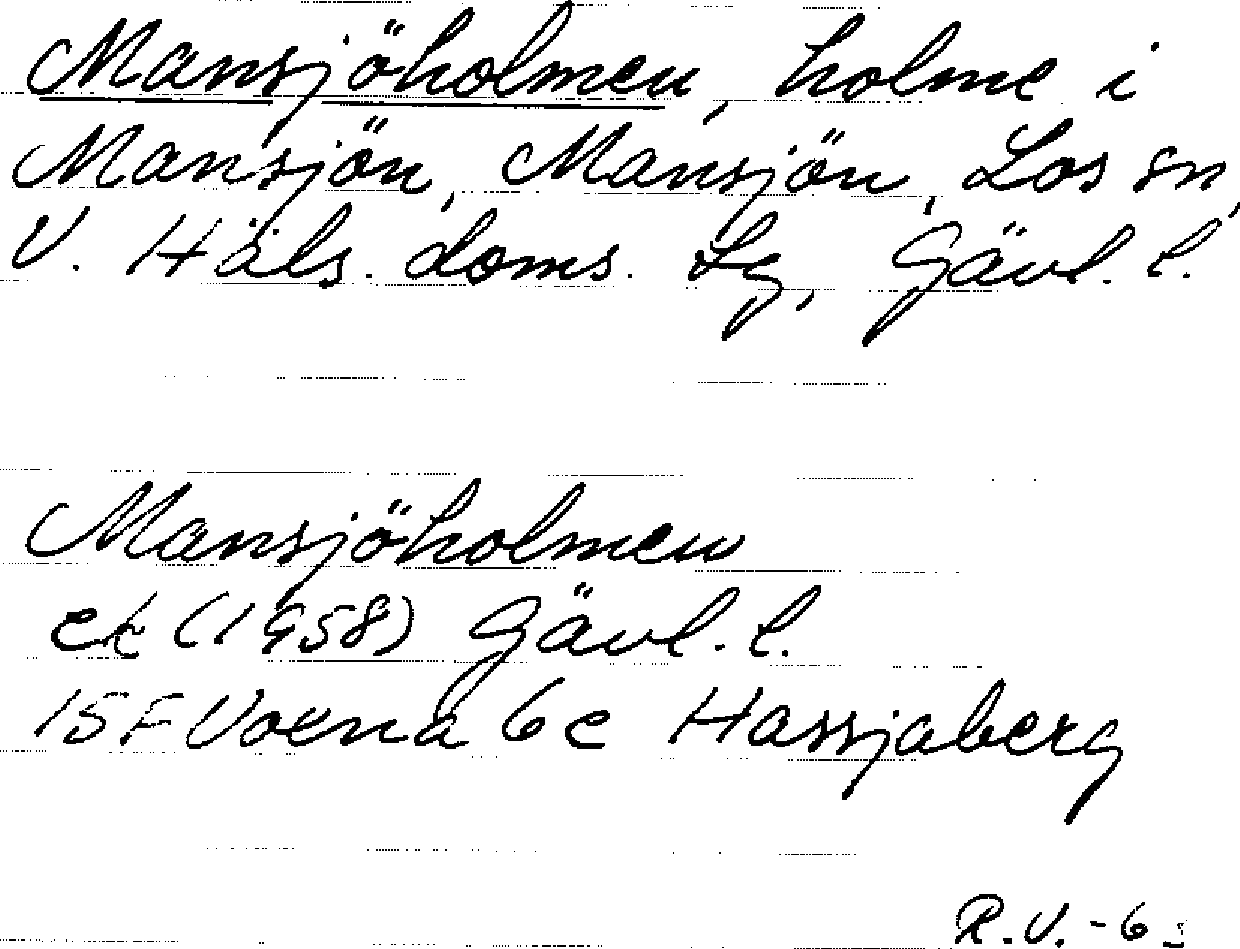 Mansjöholmen, holme i
Mansjön, Mansjön, Los sn,
V. Häls. doms. Lg, Gävl. l.
Mansjöholmen
ek (1958) Gävl. l.
15F Voxna 6e Hassjaberg
R.V. -6